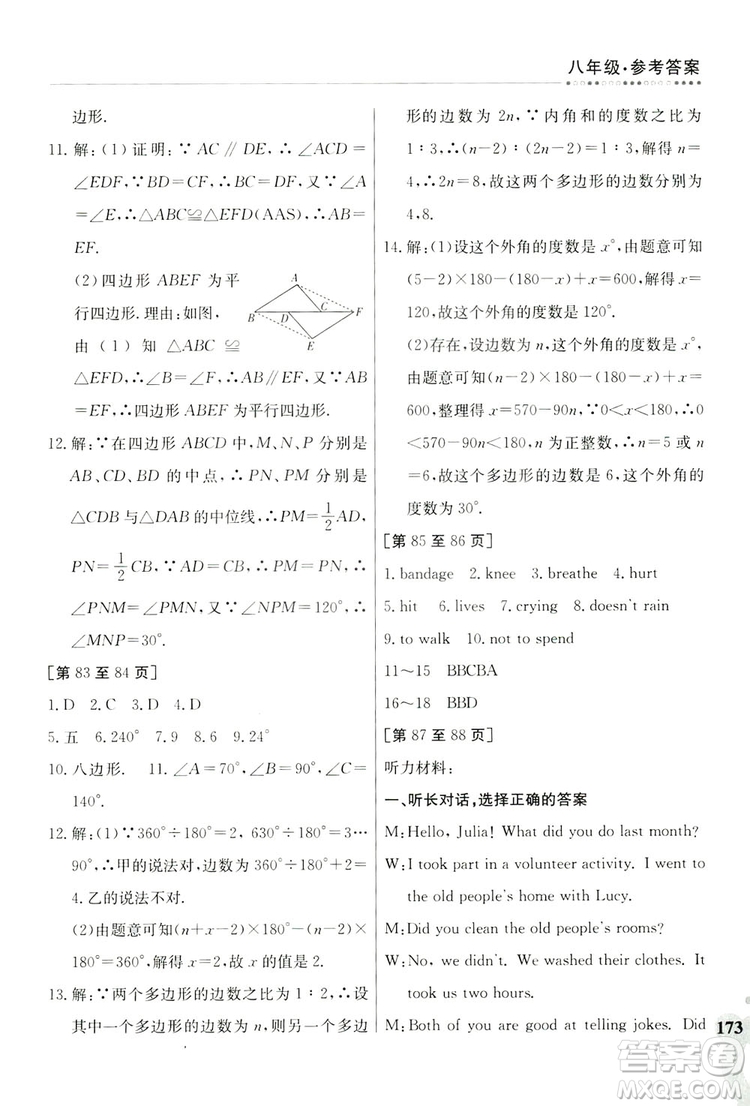 八年级·参考答案
边形.
11. 解:(1)证明:∵AC∥DE,∴∠ACD=
∠EDF,∵BD=CF,∴BC=DF,又∵∠A
=∠E,∴△ABC≌△EFD(AAS),∴AB=
EF.
(2)四边形 ABEF 为平
行四边形.理由:如图,
由(1)知△ABC≌
△EFD,∴∠B=∠F,∴AB∥EF,又∵AB
=EF,∴四边形 ABEF 为平行四边形.
A
B
D
C
F
E
12. 解:∵在四边形 ABCD 中,M、N、P 分别是
AB、CD、BD 的中点,∴PN、PM 分别是
△CDB 与△DAB 的中位线,∴PM=1/2AD,
PN=1/2CB,∵AD=CB,∴PN=PM,
∴∠PNM=∠PMN,又∵∠MPN=120°,∴
∠MNP=30°.
[第 83 至 84 页]
1. D 2. C 3. D 4. D
5. 五 6. 240° 7. 9 8. 6 9. 24°
10. 八边形. 11. ∠A=70°,∠B=90°,∠C=
140°.
12. 解:(1)∵360°÷180°=2,630°÷180°=3…
90°,∴甲的说法对,边数为360°÷180°+2=
4.乙的说法不对.
(2)由题意可知(n+x-2)×180°-(n-2)×
180°=360°,解得x=2,故 x 的值是 2.
13. 解:∵两个多边形的边数之比为 1∶2,∴设
其中一个多边形的边数为 n,则另一个多边
形的边数为 2n,∵内角和的度数之比为
1∶3,∴(n-2)∶(2n-2)=1∶3,解得 n=
4,∴2n=8,故这两个多边形的边数分别为
4,8.
14. 解:(1)设这个外角的度数是 x°,由题意可知
(5-2)×180-(180-x)+x=600,解得 x=
120,故这个外角的度数为 120°.
(2)存在,设边数为 n,这个外角的度数是 x°,
由题意可知(n-2)×180-(180-x)+x=
600,整理得 x=570-90n,∵0<x<180,∴0
<570-90n<180,∵n 为正整数,∴n
=6,故这个多边形的边数是 6,这个外角的
度数为 30°.
[第 85 至 86 页]
1. bandage 2. knee 3. breathe 4. hurt
5. hit 6. lives 7. crying 8. doesn't rain
9. to walk 10. not to spend
11~15 BBCBA
16~18 BBD
[第 87 至 88 页]
听力材料:
一、听长对话,选择正确的答案
M: Hello, Julia! What did you do last month?
W: I took part in a volunteer activity. I went to
the old people's home with Lucy.
M: Did you clean the old people's rooms?
W: No, we didn't. We washed their clothes. It
took us two hours.
M: Both of you are good at telling jokes. Did
173
答案圈
MXQE.COM